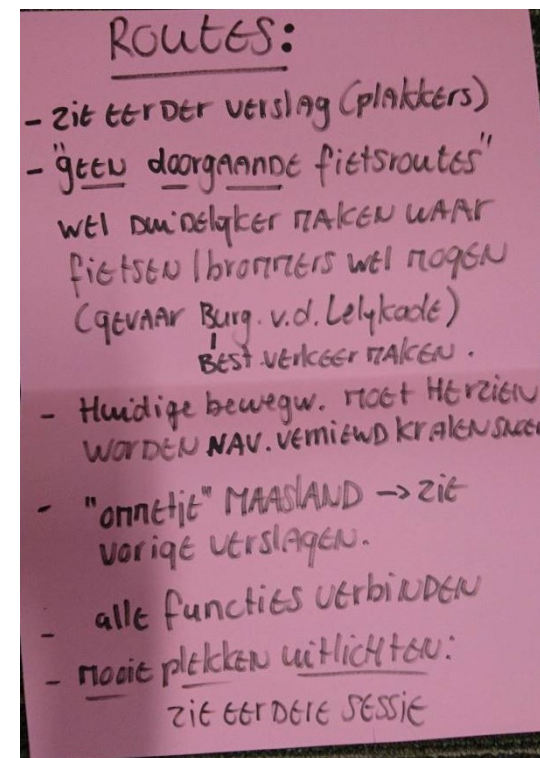 Routes:
- zie eerder verslag (plakkers)
- "geen doorgaande fietsroutes"
wel duidelijker maken waar
fietsen / brommers wel mogen
(gevaar Burg. v.d. Lelykade)
Best. verkeer maken.
- Huidige bewegw. moet herzien
worden NAV. vernieuwd
- "ommetje" MAASLAND → zie
vorige verslagen.
- alle functies verbinden
- mooie plekken uitlichten:
zie eerdere sessie